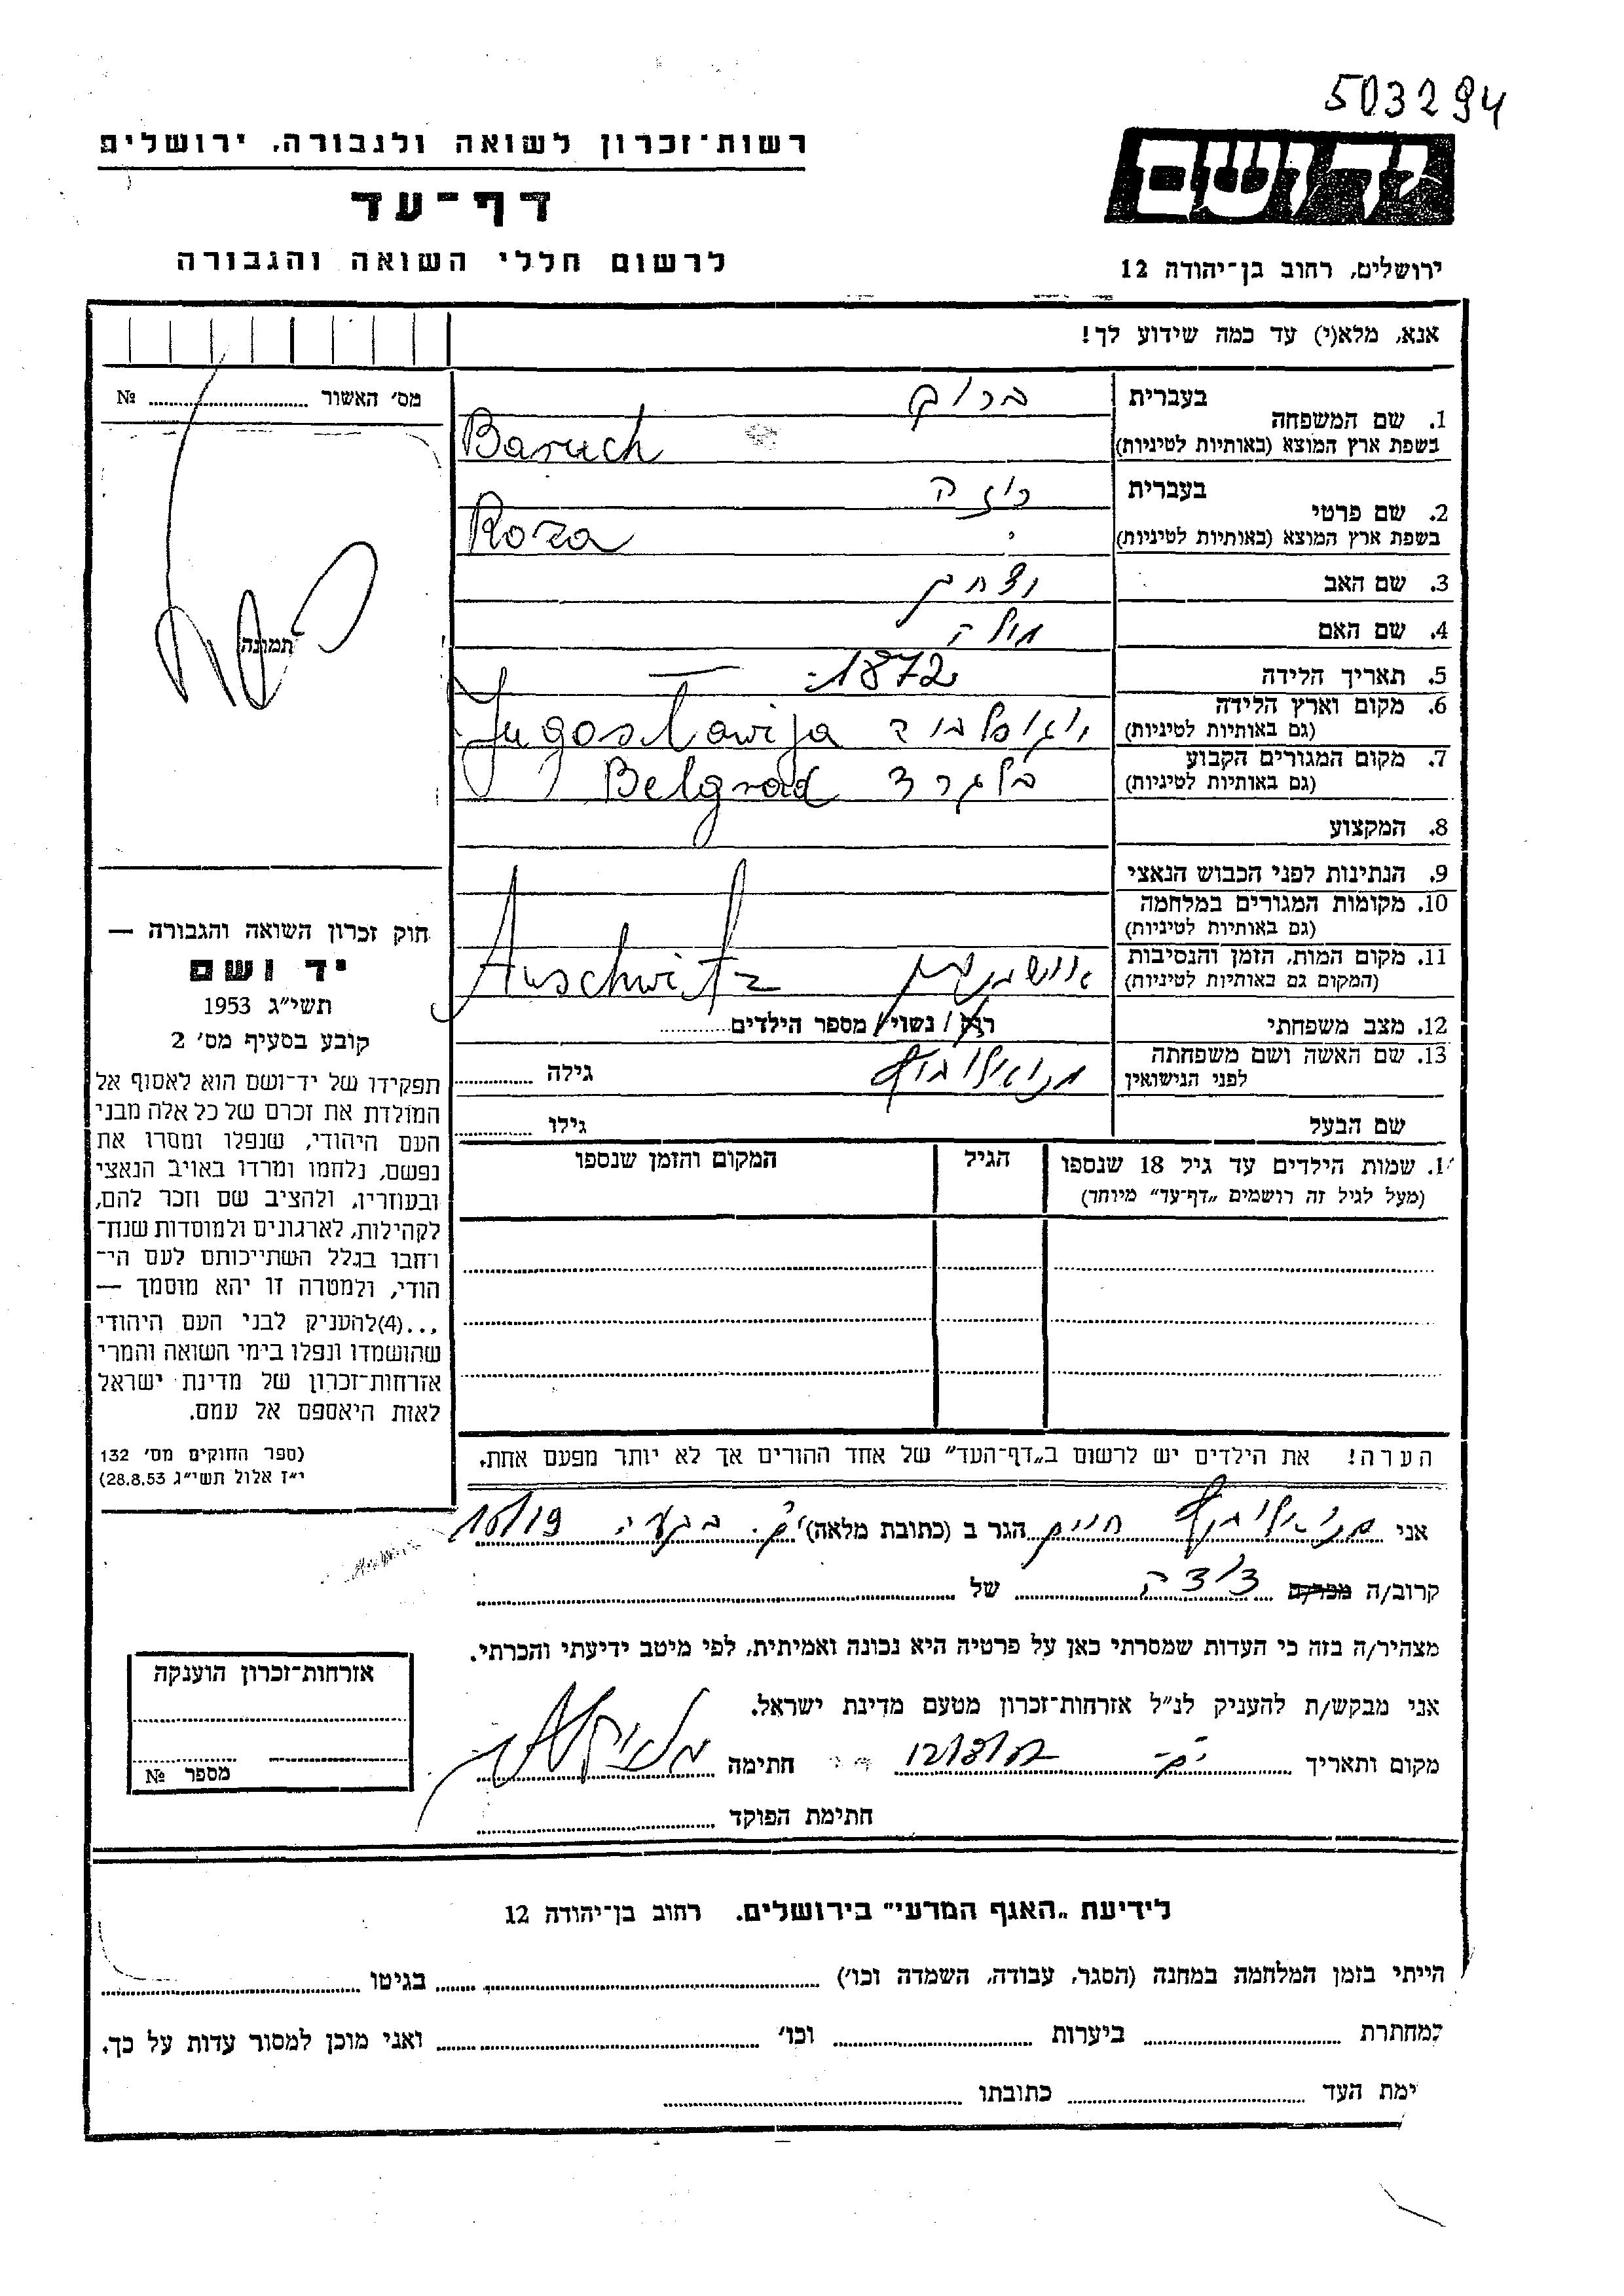 503294
רשות־זכרון לשואה ולגבורה, ירושלים
ידושם
דף־עד
לרשום חללי השואה והגבורה
ירושלים, רחוב בן־יהודה 12
אנא, מלא(י) עד כמה שידוע לך!
מס׳ האשור № 
1. שם המשפחה
בעברית ברוך
בשפת ארץ המוצא (באותיות לטיניות) Baruch
2. שם פרטי
בעברית רוזה
בשפת ארץ המוצא (באותיות לטיניות) Roza
תמונה
3. שם האב יצחק
4. שם האם
5. תאריך הלידה 1872
6. מקום וארץ הלידה
(גם באותיות לטיניות) יוגוסלביה Jugoslawija
7. מקום המגורים הקבוע
(גם באותיות לטיניות) בלגרד Belgrad
8. המקצוע
9. הנתינות לפני הכבוש הנאצי
10. מקומות המגורים במלחמה
(גם באותיות לטיניות)
11. מקום המות, הזמן והנסיבות
(המקום גם באותיות לטיניות) אושביץ Auschwitz
12. מצב משפחתי רוק/ נשוי/ מספר הילדים
13. שם האשה ושם משפחתה
לפני הנישואין גילה
שם הבעל גילו
חוק זכרון השואה והגבורה —
יד ושם
תשי״ג 1953
קובע בסעיף מס׳ 2
תפקידו של יד־ושם הוא לאסוף אל
המולדת את זכרם של כל אלה מבני
העם היהודי, שנפלו ומסרו את
נפשם, נלחמו ומרדו באויב הנאצי
ובעוזריו, ולהציב שם וזכר להם,
לקהילות, לארגונים ולמוסדות שנח־
רחבו בגלל השתייכותם לעם הי־
הודי, ולמטרה זו יהא מוסמך —
...(4)להעניק לבני העם היהודי
שהושמדו ונפלו בימי השואה והמרי
אזרחות־זכרון של מדינת ישראל
לאות היאספם אל עמם.
(ספר החוקים מס׳ 132
י״ז אלול תשי״ג 28.8.53)
1. שמות הילדים עד גיל 18 שנספו הגיל המקום והזמן שנספו
(מעל לגיל זה רושמים „דף־עד״ מיוחד)
הערה! את הילדים יש לרשום ב„דף־העד״ של אחד ההורים אך לא יותר מפעם אחת.
אני חיים הגר ב (כתובת מלאה) בקעה 16/19
קרוב/ה מכר/ה של
מצהיר/ה בזה כי העדות שמסרתי כאן על פרטיה היא נכונה ואמיתית, לפי מיטב ידיעתי והכרתי.
אני מבקש/ת להעניק לנ״ל אזרחות־זכרון מטעם מדינת ישראל.
מקום ותאריך חתימה
חתימת הפוקד
אזרחות־זכרון הוענקה
מספר №
לידיעת „האגף המדעי״ בירושלים. רחוב בן־יהודה 12
הייתי בזמן המלחמה במחנה (הסגר, עבודה, השמדה וכו׳) בגיטו
במחתרת ביערות וכו׳ ואני מוכן למסור עדות על כך.
ימת העד כתובתו